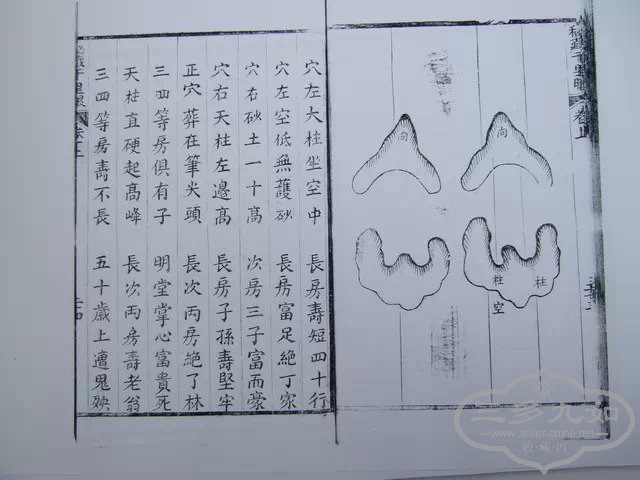 向
向
柱
柱
空
穴左大柱坐空中 長房壽短四十行
穴左空低無護砂 長房富足絶丁家
穴右砂土一十高 次房三子富而豪
穴右天柱左邊高 長房子孫壽堅牢
正穴葬在筆尖頭 長次丙房絶了林
三四等房俱有子 明堂掌心富貴死
天柱直硬起高峰 長次丙房壽老翁
三四等房壽不長 五十歲上遭鬼殃
www.silver-china.net